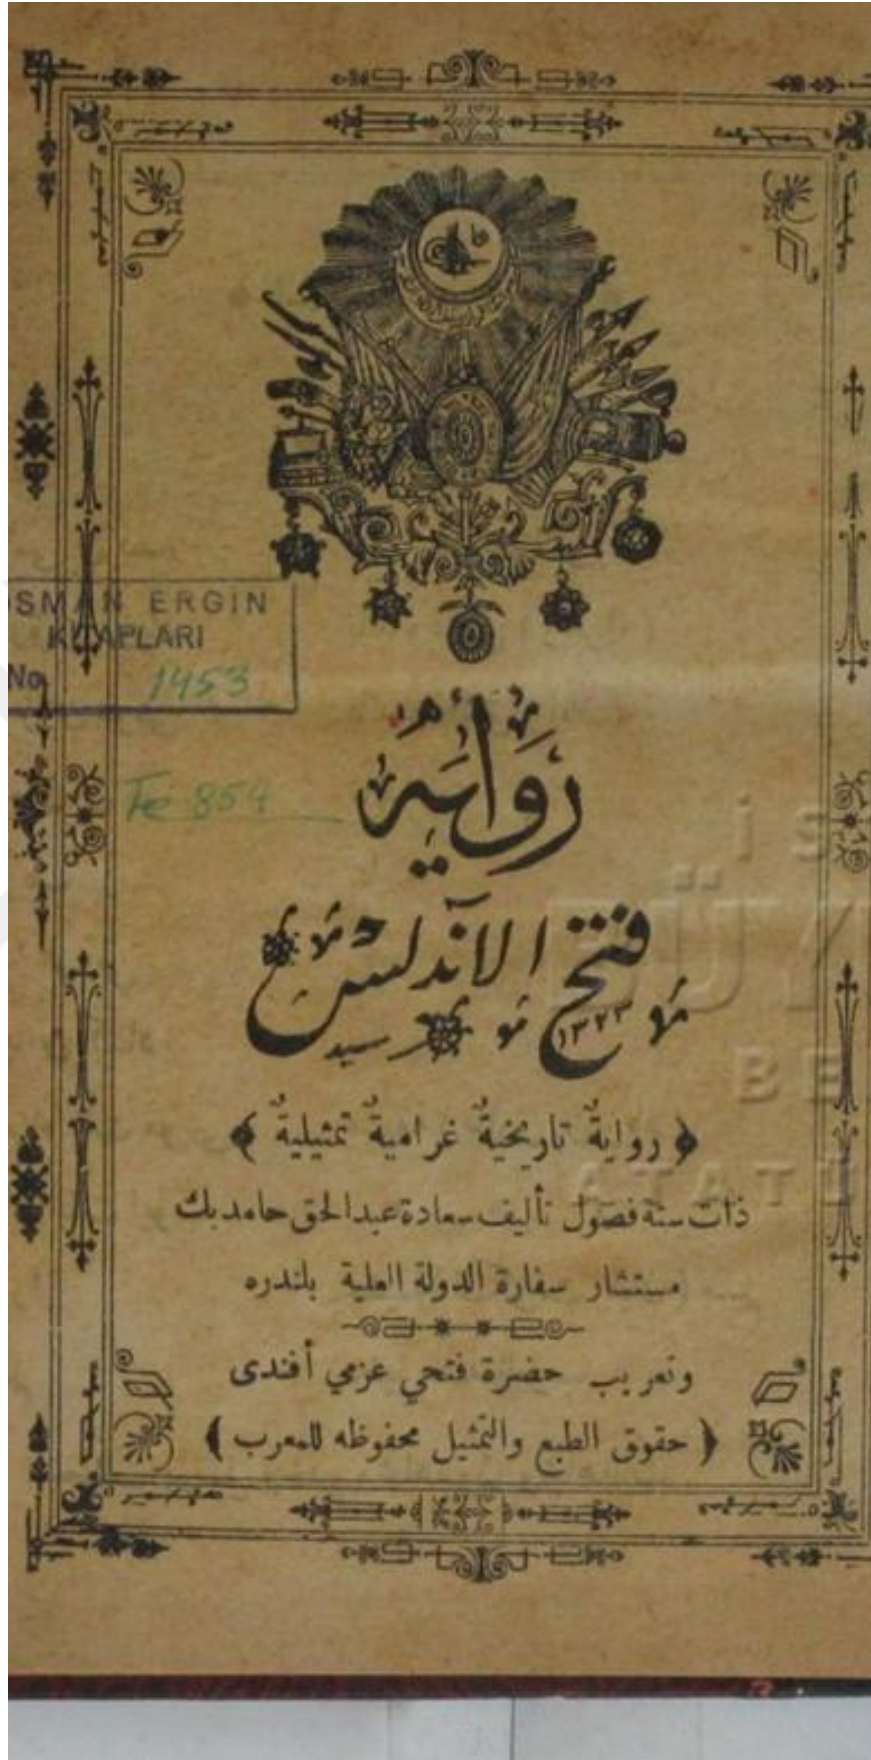 OSMAN ERGİN
KİTAPLARI
No 1453
Fe 854
رواية
فتح الاندلس
١٣٢٣
سيد
﴿ روايةٌ تاريخيةٌ غراميةٌ تمثيليةٌ ﴾
ذات ستة فصول تأليف سعادة عبدالحق حامد بك
مستشار سفارة الدولة العلية بلندره
وتعريب حضرة فتحي عزمي أفندى
( حقوق الطبع والتمثيل محفوظه للمعرب )
İS
BÜY
BE
ATATÜ